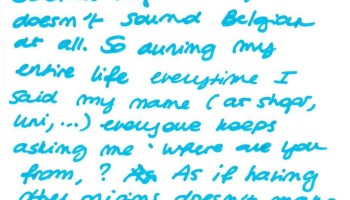 doesn't sound Belgian
at all. So during my
entire life everytime I
said my name (at shops,
uni, ...) everyone keeps
asking me 'where are you
from, ? As if having
other origins doesn't